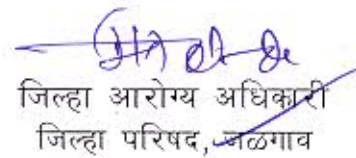 जिल्हा आरोग्य अधिकारी
जिल्हा परिषद, जळगाव